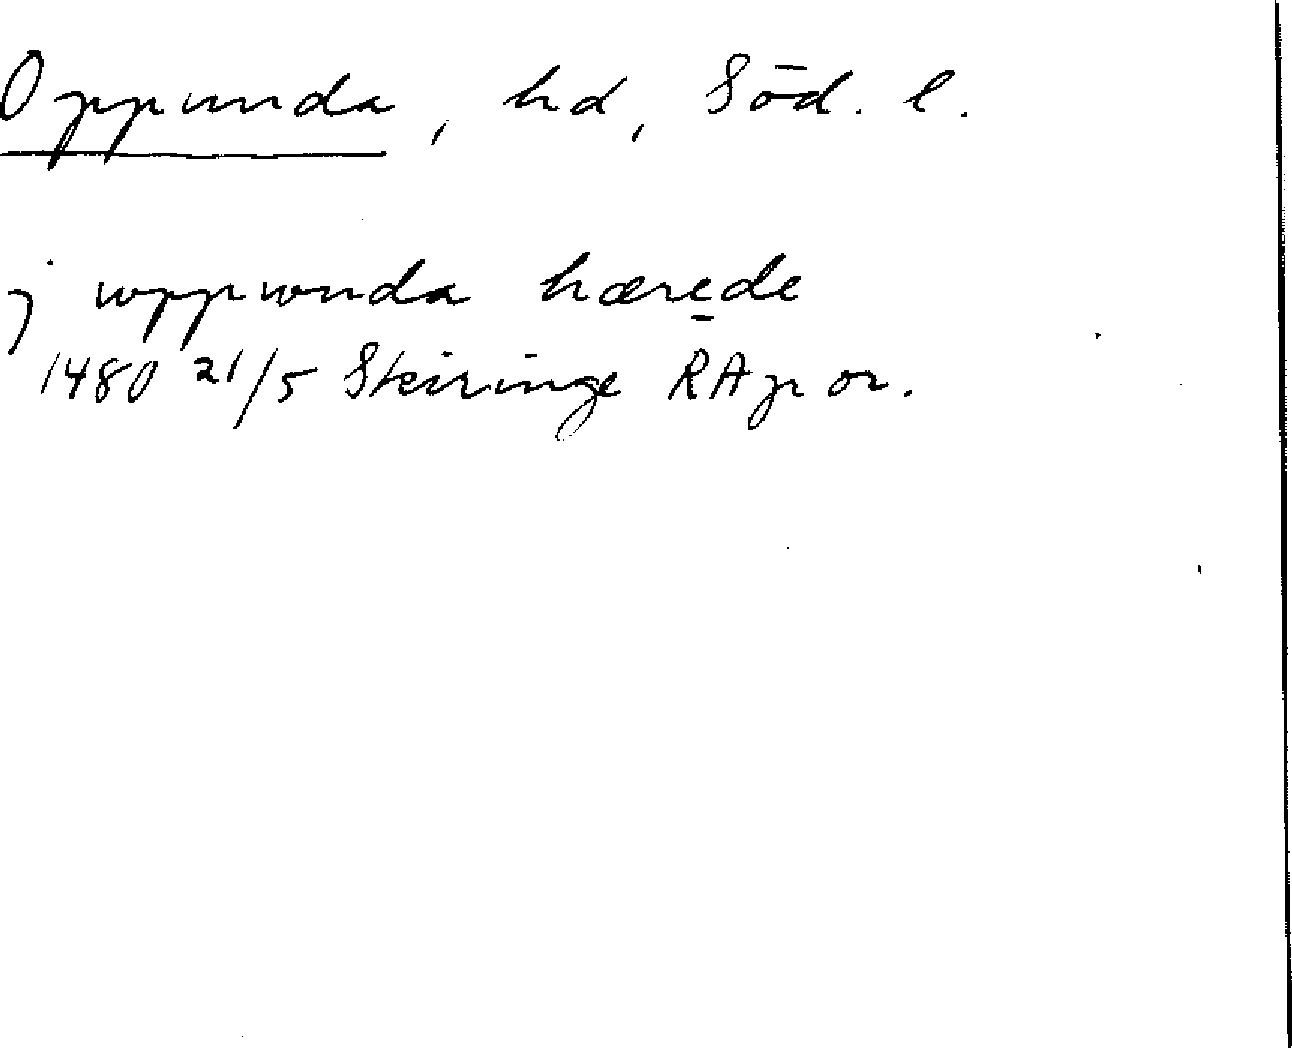 Oppunda, hd, Söd. l.
j wppwnda hærede
1480 21/5 Skiringe RAp or.